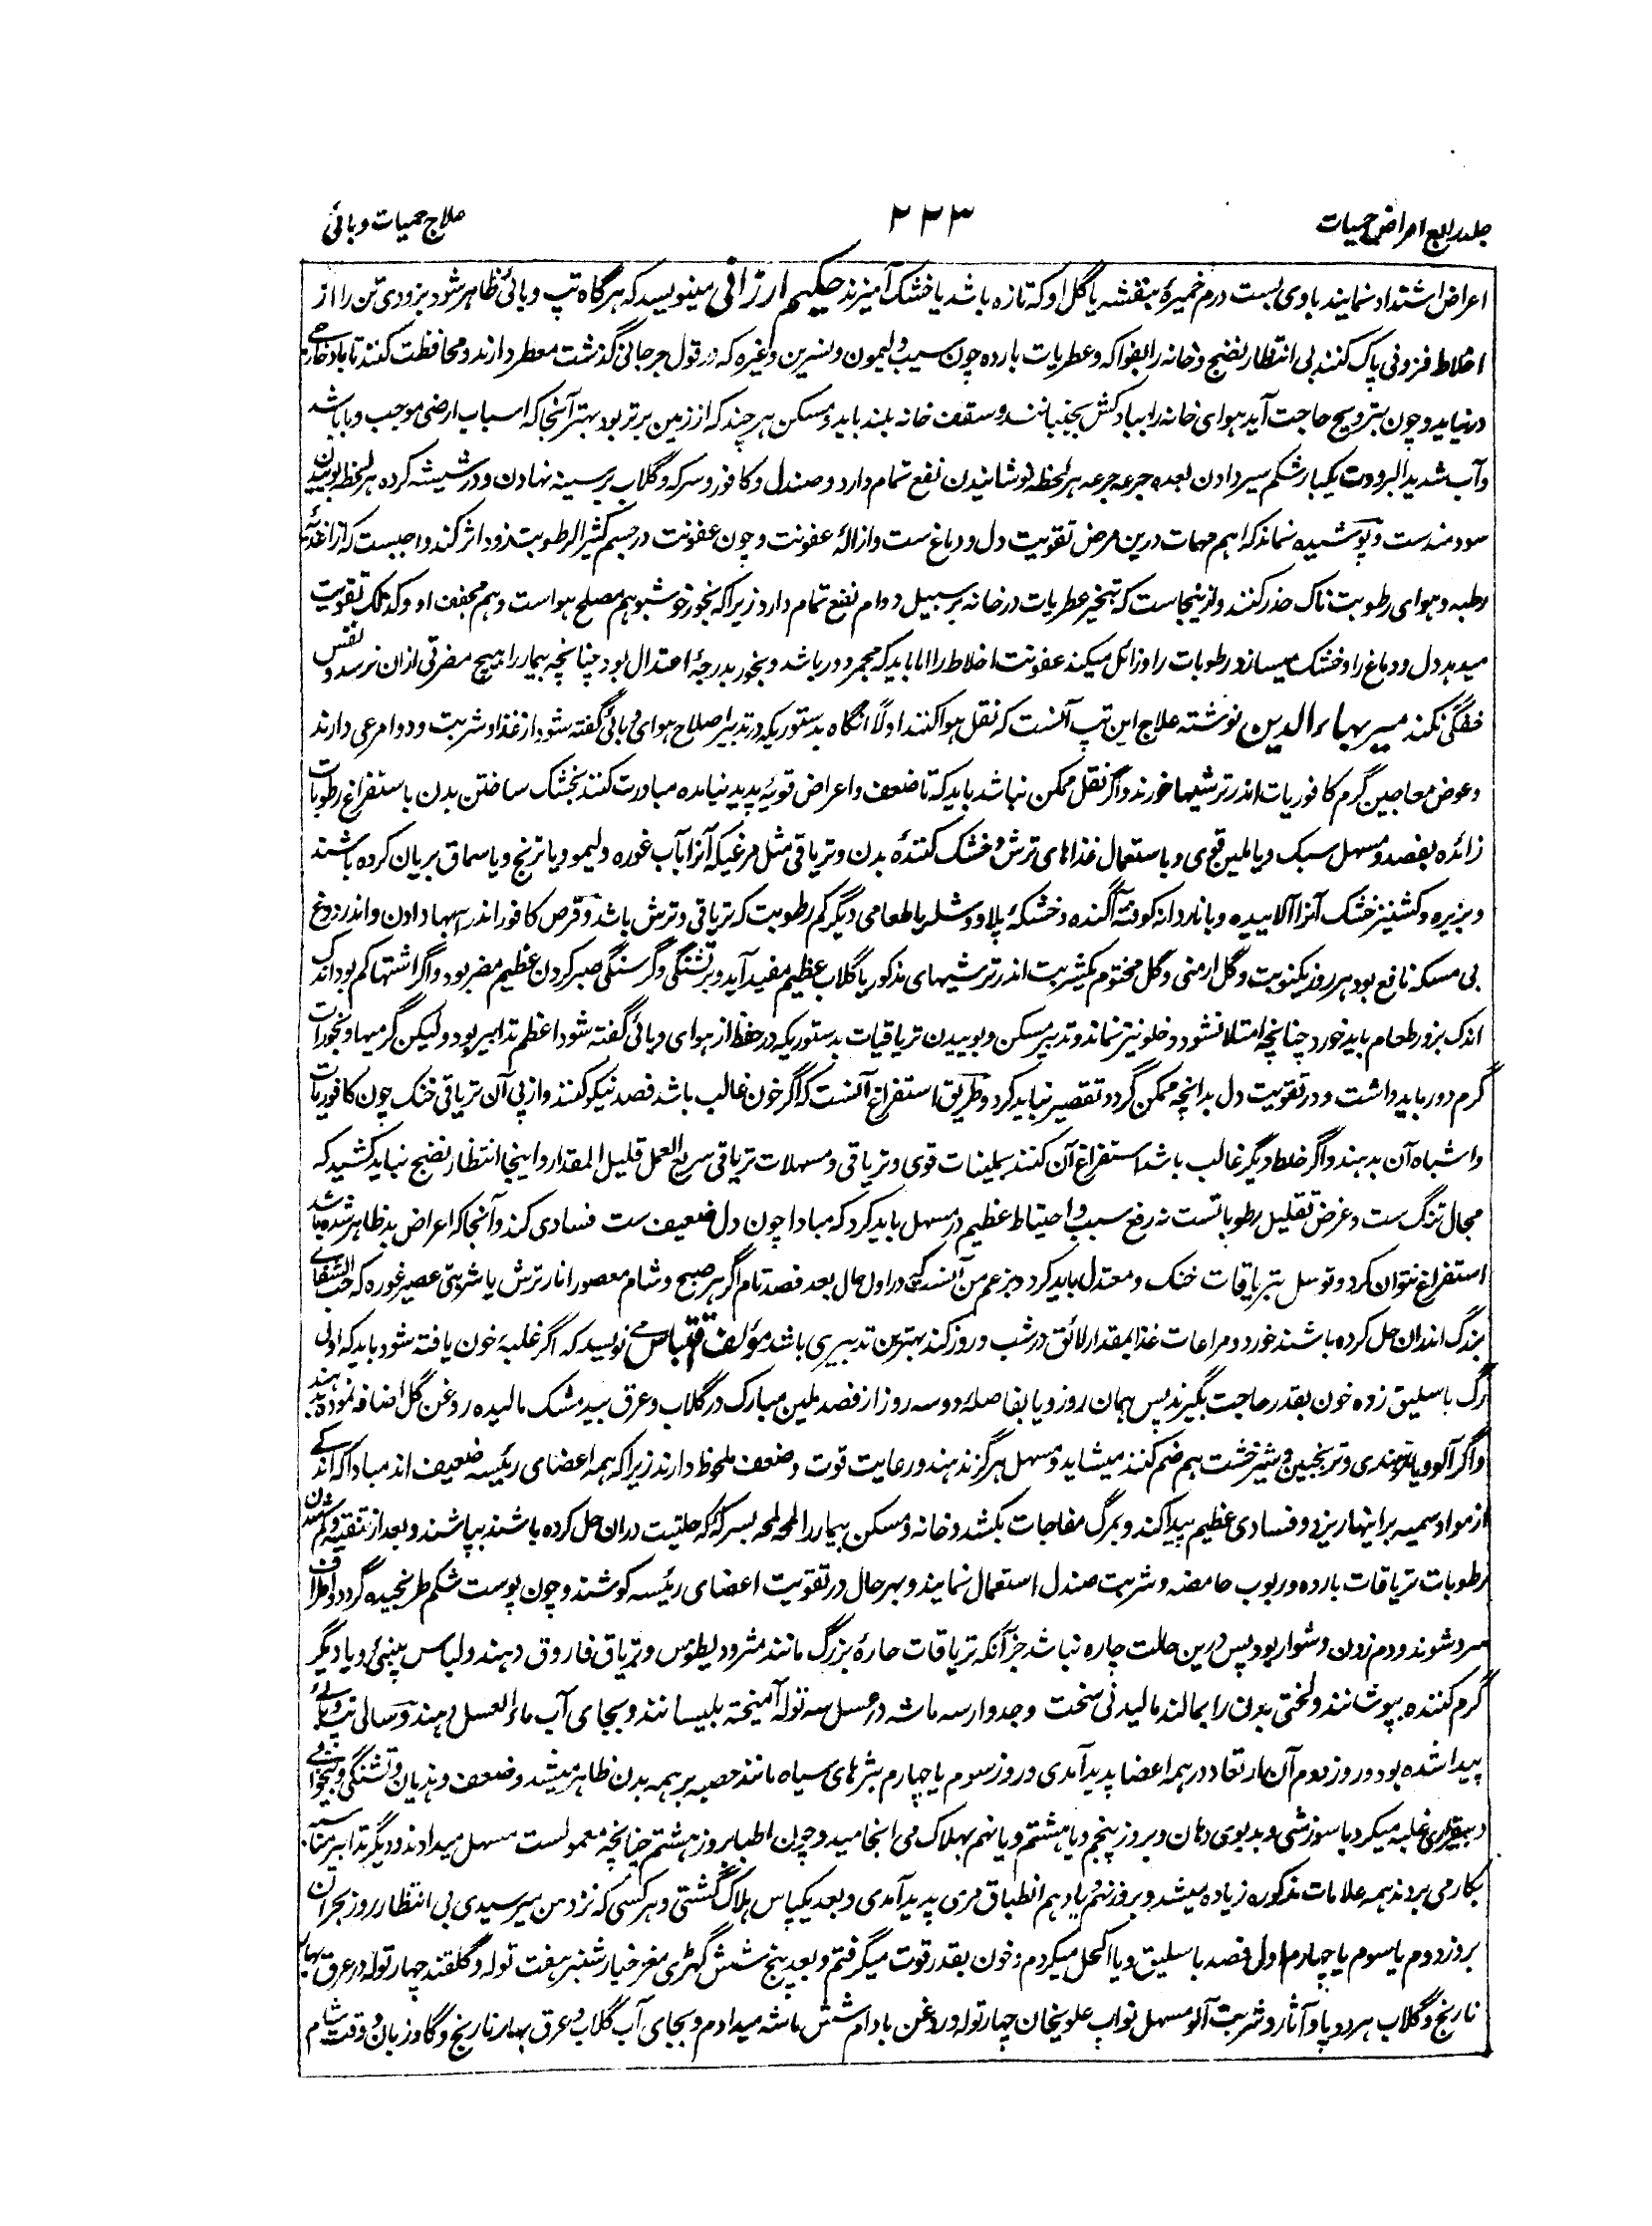 جلد رابع امراض حمیات
۲۲۳
علاج حمیات وبائی
اعراض اشتداد نمایند با وی بست درم خمیرهٔ بنفشه یا گل او که تازه باشد یا خشک آمیزند حکیم ارزانی مینویسد که هرگاه تپ وبائی ظاهر شود بزودی تن را از
اخلاط فزونی پاک کنند بی انتظار نضج و خانه را بفواکه و عطریات بارده چون سیب و لیمون و نسرین وغیره که در قول جرجانی گذشت معطر دارند و محافظت کنند تا باد خارجی
درنیاید و چون بترویح حاجت آید هوای خانه را ببادکش بجنبانند و سقف خانه بلند باید و مسکن هر چند که از زمین برتر بود بهتر آنجا که اسباب ارضی موجب وبا باشد
و آب شدید البرودت یکبار شکم سیر دادن بعده جرعه جرعه هر لحظه نوشانیدن نفع تمام دارد و صندل و کافور و سرکه و گلاب بر سینه نهادن و در شیشه کرده هر لحظه بوییدن
سودمندست و پوشیده نماند که اهم مهمات درین مرض تقویت دل و دماغ ست و ازالهٔ عفونت و چون عفونت در جسم کثیر الرطوبت زود اثر کند واجبست که از اغذیهٔ
رطبه و هوای رطوبت ناک حذر کنند و ازینجاست که تبخیر عطریات در خانه بر سبیل دوام نفع تمام دارد زیرا که بخور خوشبو هم مصلح هواست و هم مجفف او و کذلک تقویت
میدهد دل و دماغ را و خشک میسازد رطوبات را و زائل میکند عفونت اخلاط را اما باید که مجمر دور باشد و بخور بدرجهٔ اعتدال بود چنانچه بیمار را هیچ مضرتی ازان نرسد و نفس
خفگی نکند میر بهاءالدین نوشته علاج این تپ آنست که نقل هوا کنند اولاً انگاه بدستوریکه در تدبیر اصلاح هوای وبائی گفته شود از غذا و شربت و دوا مرعی دارند
و عوض معاجین گرم کافوریات اندر ترشیها خورند و اگر نقل ممکن نباشد باید که تا ضعف و اعراض قویه پدید نیامده مبادرت کنند بخشک ساختن بدن باستفراغ رطوبات
زائده بفصد و مسهل سبک و یا ملین قوی و باستعمال غذاهای ترش و خشک کنندهٔ بدن و تریاقی مثل مرغیکه آنرا بآب غوره و لیمو و یا ترنج و یا سماق بریان کرده باشند
و بزیره و کشنیز خشک آنرا آلاییده و بانار دانه کوفته آگنده و خشکهٔ پلاو و شله یا طعامی دیگر کم رطوبت که تریاقی و ترش باشد و قرص کافور اندر آبها دادن و اندر دوغ
بی مسکه نافع بود هر روز یکنوبت و گل ارمنی و گل مختوم یکشربت اندر ترشیهای مذکور یا گلاب عظیم مفید آید و بر تشنگی و گرسنگی صبر کردن عظیم مضر بود و اگر اشتها کم بود اندک
اندک بزور طعام باید خورد چنانچه امتلا نشود و خلو نیز نماند و تدبیر مسکن و بوییدن تریاقیات بدستوریکه در حفظ از هوای وبائی گفته شود اعظم تدابیر بود و لیکن گرمیها و بخورات
گرم دور باید داشت و در تقویت دل بدانچه ممکن گردد تقصیر نباید کرد و طریق استفراغ آنست که اگر خون غالب باشد فصد نیکو کنند و از پی آن تریاقی خنک چون کافوریات
و اشباه آن بدهند و اگر خلط دیگر غالب باشد استفراغ آن کنند بملینات قوی و تریاقی و مسهلات تریاقی سریع العمل قلیل المقدار و اینجا انتظار نضج نباید کشید که
مجال تنگ ست و غرض تقلیل رطوباتست نه رفع سبب و احتیاط عظیم در مسهل باید کرد که مبادا چون دل ضعیف ست فسادی کند و آنجا که اعراض بد ظاهر شده باشد
استفراغ نتوان کرد و توسل بتریاقات خنک و معتدل باید کرد و بزعم من آنست که در اول حال بعد فصد تام اگر هر صبح و شام معصور انار ترش یا شربتی عصیر غوره که حب الشفای
بزرگ اندران حل کرده باشند خورد و مراعات غذا بمقدار لائق در شب و روز کند بهترین تدبیری باشد مؤلف اقتباس می نویسد که اگر غلبهٔ خون یافته شود باید که اولی
رگ باسلیق زده خون بقدر حاجت بگیرند پس همان روز و یا بفاصلهٔ دو سه روز از فصد ملین مبارک در گلاب و عرق بید مشک مالیده روغن گل اضافه نموده بدهند
و اگر آلو و یا تمر هندی و ترنجبین و شیرخشت هم ضم کنند میشاید و مسهل هرگز ندهند و رعایت قوت و ضعف ملحوظ دارند زیرا که همه اعضای رئیسه ضعیف اند مبادا که اندکی
از مواد سمیه بر اینها ریزد و فسادی عظیم پیدا کند و بمرگ مفاجات بکشد و خانه و مسکن بیمار را لمحه لمحه بسرکه که حلتیت دران حل کرده باشند بپاشند و بعد از تنقیه و کم شدن
رطوبات تریاقات بارده و ربوب حامضه و شربت صندل استعمال نمایند و بهر حال در تقویت اعضای رئیسه کوشند و چون پوست شکم طرنجیده گردد و اطراف
سرد شوند و دم زدن دشوار بود پس درین حالت چاره نباشد جز آنکه تریاقات حارهٔ بزرگ مانند مثرودیطوس و تریاق فاروق دهند و لباس پنبئی و یا دیگر
گرم کننده بپوشانند و لختی بدن را بمالند مالیدنی سخت و جدوار سه ماشه در عسل سه توله آمیخته بلیسانند و بجای آب ماء العسل دهند و سالی تپ وبائی
پیدا شده بود و روز دوم آن ارتعاد در همه اعضا پدید آمدی و روز سوم یا چهارم بثرهای سیاه مانند حصبه بر همه بدن ظاهر میشد و ضعف و هذیان و تشنگی و بیخوابی
و بیقراری غلبه میکرد با سوزشی و بدبوی دهان و بروز پنجم و یا هشتم و یا نهم بهلاک می انجامید و چون اطبا بروز هشتم چنانچه معمولست مسهل میدادند و دیگر تدابیر
بکار می بردند همه علامات مذکوره زیاده میشد و بروز نهم و یا دهم انطباق مری پدید آمدی و بعد یکپاس هلاک گشتی و هر کسی که نزد من میرسیدی بی انتظار روز بحران
بروز دوم یا سوم یا چهارم اول فصد باسلیق و یا اکحل میکردم و خون بقدر قوت میگرفتم و بعد پنج شش گهڑی مغز خیارشنبر هفت توله و گلقند چهار توله در عرق بهار
نارنج و گلاب هر دو پاو آثار و شربت آلو مسهل نواب علویخان چهار توله و روغن بادام شش ماشه میدادم و بجای آب گلاب و عرق بهار نارنج و گاوزبان و وقت شام